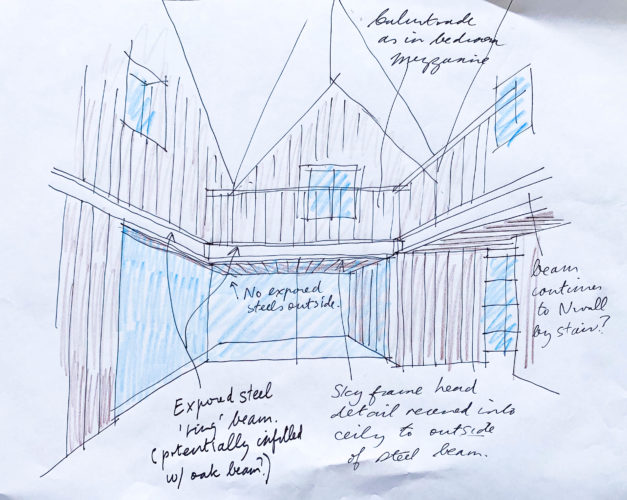 Balustrade
as in bedroom
mezzanine
No exposed
steels outside.
beam
continues
to N wall
by stair?
Exposed steel
'ring' beam.
(potentially infilled
w/ oak beam?)
Sky frame head
detail recessed into
ceily to outside
of steel beam.